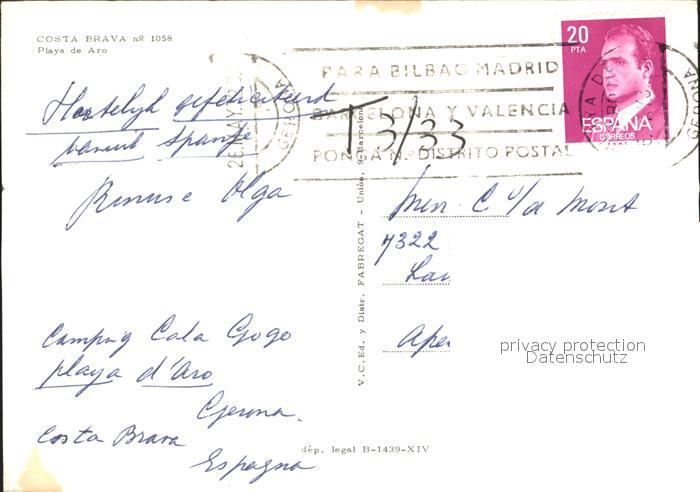 COSTA BRAVA nº 1058
Playa de Aro
20
PTA
ESPAÑA
CORREOS
PARA BILBAO MADRID
BARCELONA Y VALENCIA
PONGA Nº DISTRITO POSTAL
GERONA
GERONA
Hartelijk gefeliciteerd
vanuit Spanje
T 3/33
Rinus e Olga
Camping Cala Gogo
playa d'Aro
Gerona.
Costa Brava
Espagna
V. C. Ed. y Distr. FABREGAT - Unión, 9 Barcelona
Men C v/d Mont
7322
Lan
Ape
privacy protection
Datenschutz
dép. legal B-1439-XIV